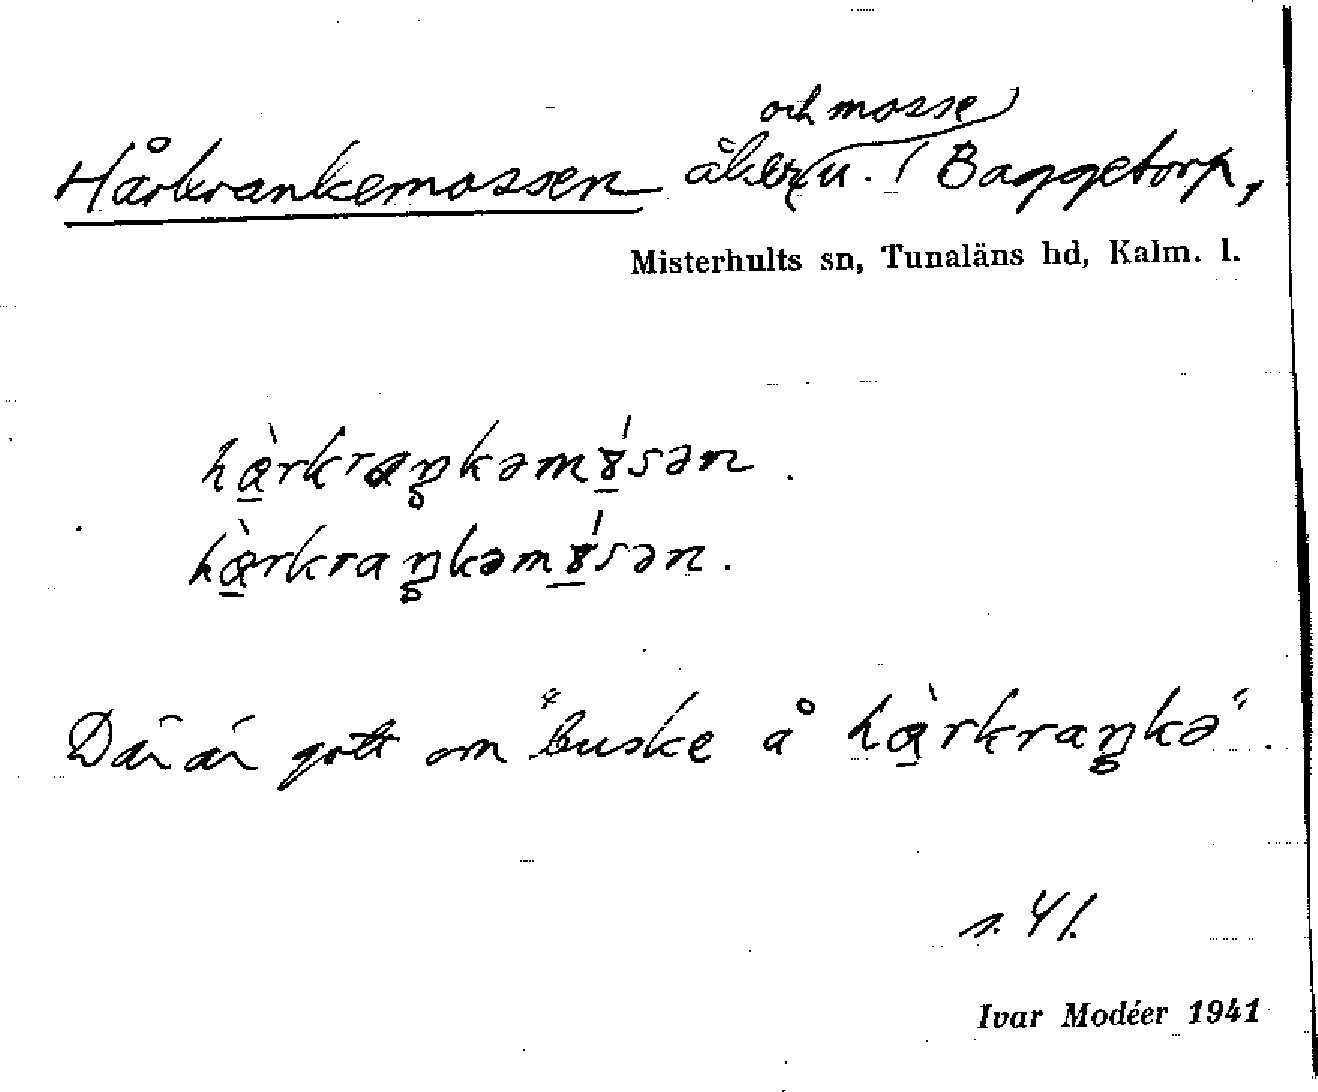 Hårkrankemossen åker och mosse u. Baggetorp,
Misterhults sn, Tunaläns hd, Kalm. l.
hàrkraŋkəmɤ́sən.
hàrkraŋkəmɤ́sən.
Där är gott om "buske å hàrkraŋkə".
s. 41.
Ivar Modéer 1941